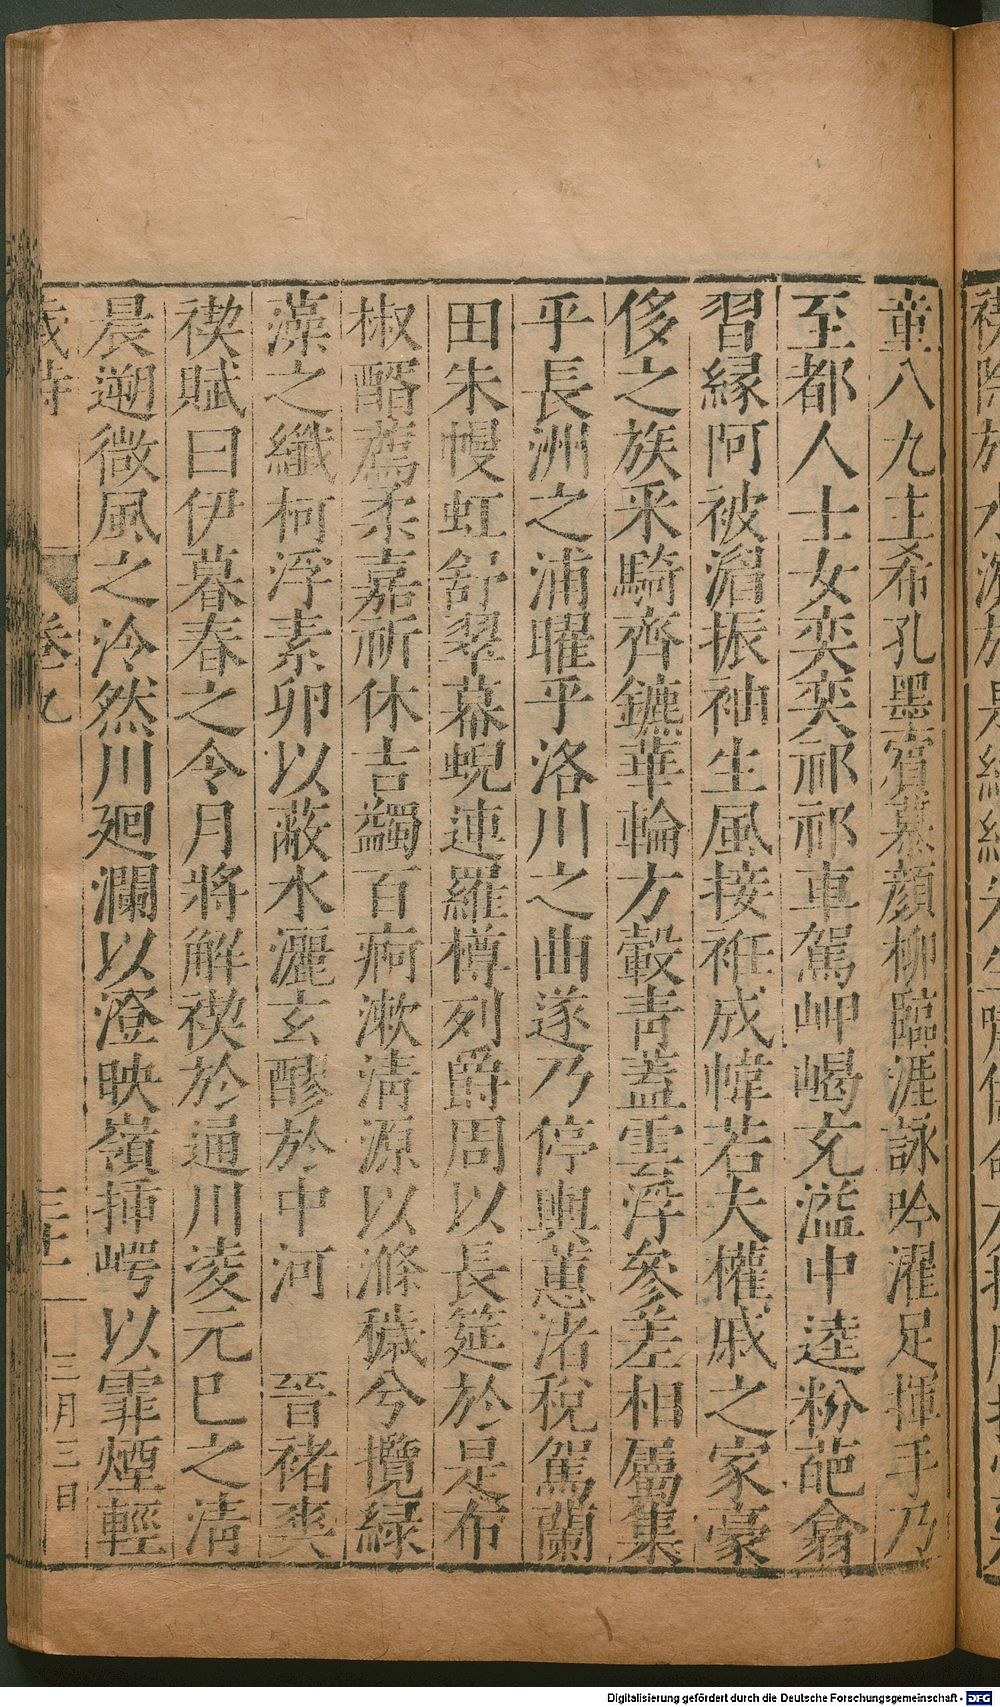 童八九主希孔墨賔慕顔柳臨涯詠吟濯足揮手乃
至都人士女奕奕祁祁車駕岬嵑充溢中逵粉葩翕
習緣阿被湄振袖生風接衽成幃若夫權戚之家豪
侈之族采騎齊鑣華輪方轂青蓋雲浮參差相屬集
乎長洲之浦曜乎洛川之曲遂乃停輿蕙渚稅駕蘭
田朱幔虹舒翠幕蜺連羅樽列爵周以長筵於是布
椒醑薦柔嘉祈休吉蠲百痾漱清源以滌穢兮攬緑
藻之纖柯浮素卵以蔽水灑玄醪於中河 晉褚爽
禊賦曰伊暮春之令月將解禊於通川凌元巳之清
晨遡微風之泠然川廻瀾以澄映嶺插崿以霏煙輕
歲時 卷九 三月三日
Digitalisierung gefördert durch die Deutsche Forschungsgemeinschaft - DFG